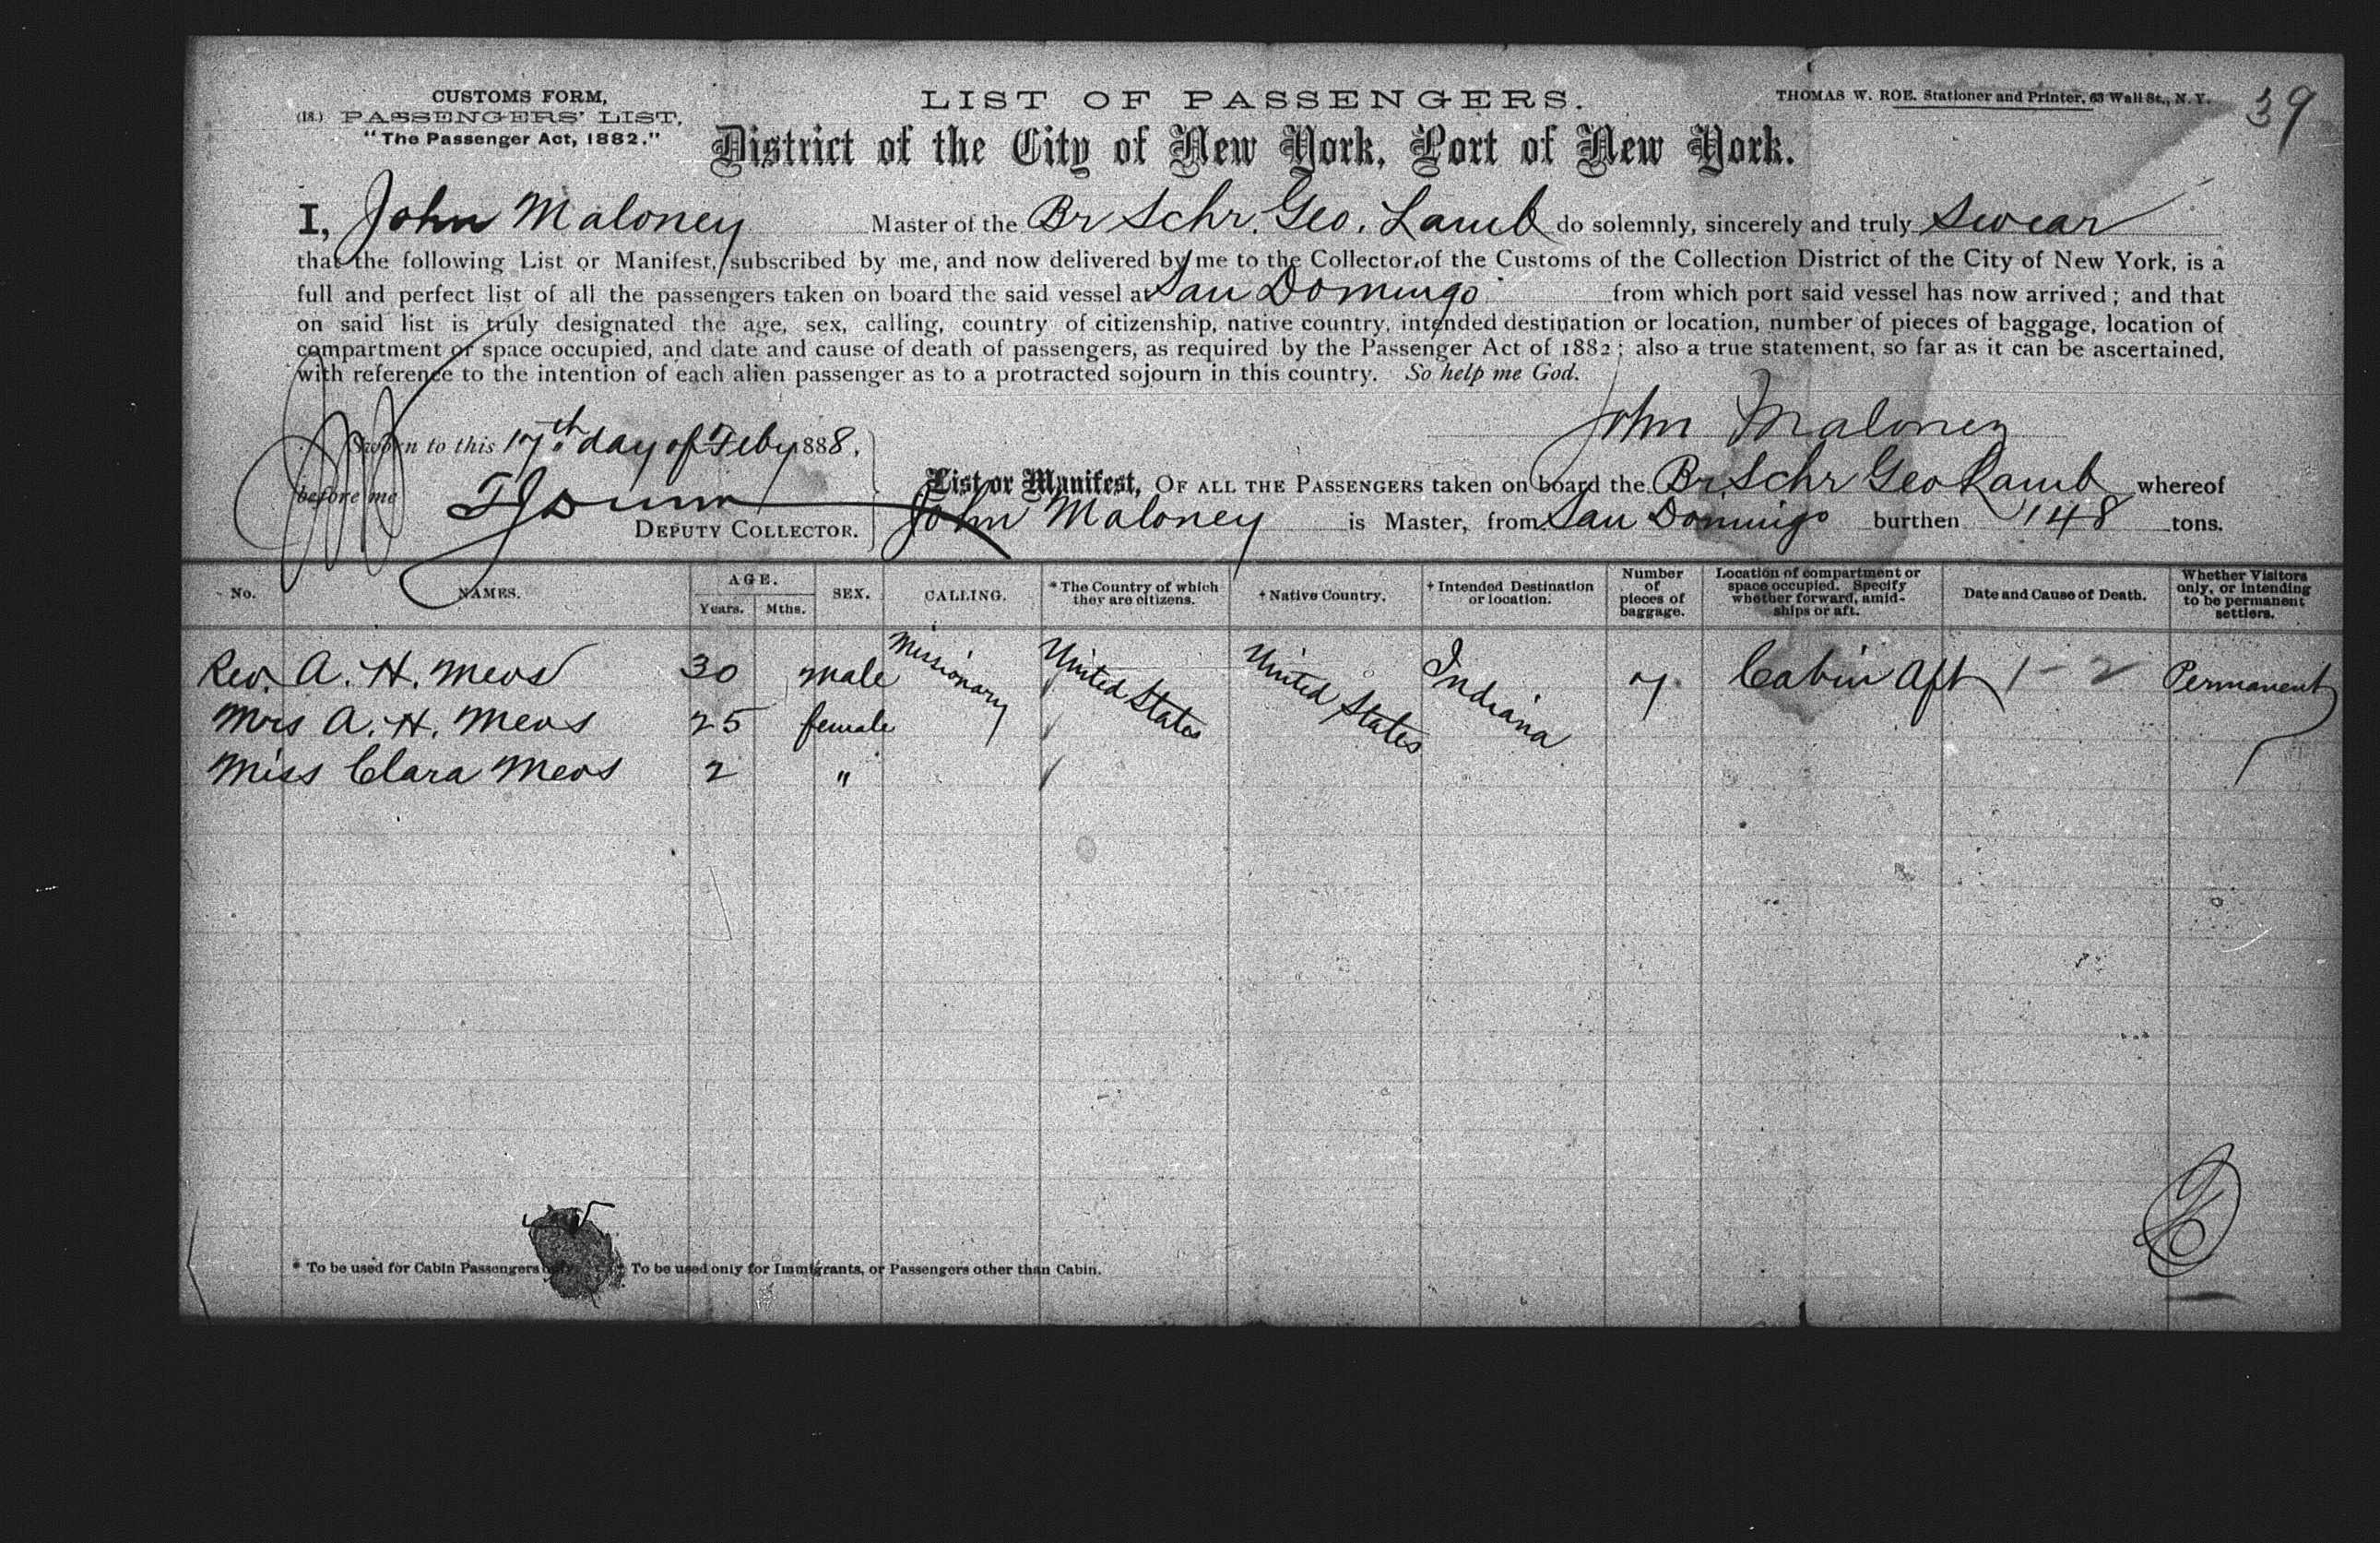 CUSTOMS FORM,
(18.) PASSENGERS' LIST,
"The Passenger Act, 1882."
LIST OF PASSENGERS.
THOMAS W. ROE. Stationer and Printer, 63 Wall St., N. Y.
39
District of the City of New York, Port of New York.
I, John Maloney Master of the Br Schr. Geo. Lamb do solemnly, sincerely and truly swear
that the following List or Manifest, subscribed by me, and now delivered by me to the Collector of the Customs of the Collection District of the City of New York, is a
full and perfect list of all the passengers taken on board the said vessel at San Domingo from which port said vessel has now arrived; and that
on said list is truly designated the age, sex, calling, country of citizenship, native country, intended destination or location, number of pieces of baggage, location of
compartment or space occupied, and date and cause of death of passengers, as required by the Passenger Act of 1882; also a true statement, so far as it can be ascertained,
with reference to the intention of each alien passenger as to a protracted sojourn in this country. So help me God.
John Maloney
Sworn to this 17th day of Feby 1888,
before me
DEPUTY COLLECTOR.
List or Manifest, OF ALL THE PASSENGERS taken on board the Br. Schr Geo Lamb whereof
John Maloney is Master, from San Domingo burthen 148 tons.
No. NAMES. AGE. Years. Mths. SEX. CALLING. * The Country of which they are citizens. † Native Country. † Intended Destination or location. Number of pieces of baggage. Location of compartment or space occupied. Specify whether forward, amidships or aft. Date and Cause of Death. Whether Visitors only, or intending to be permanent settlers.
Rev. A. H. Mevs 30 male Missionary United States United States Indiana 7 Cabin Aft 1 - 2 Permanent
Mrs A. H. Mevs 25 female
Miss Clara Mevs 2 "
* To be used for Cabin Passengers only. To be used only for Immigrants, or Passengers other than Cabin.